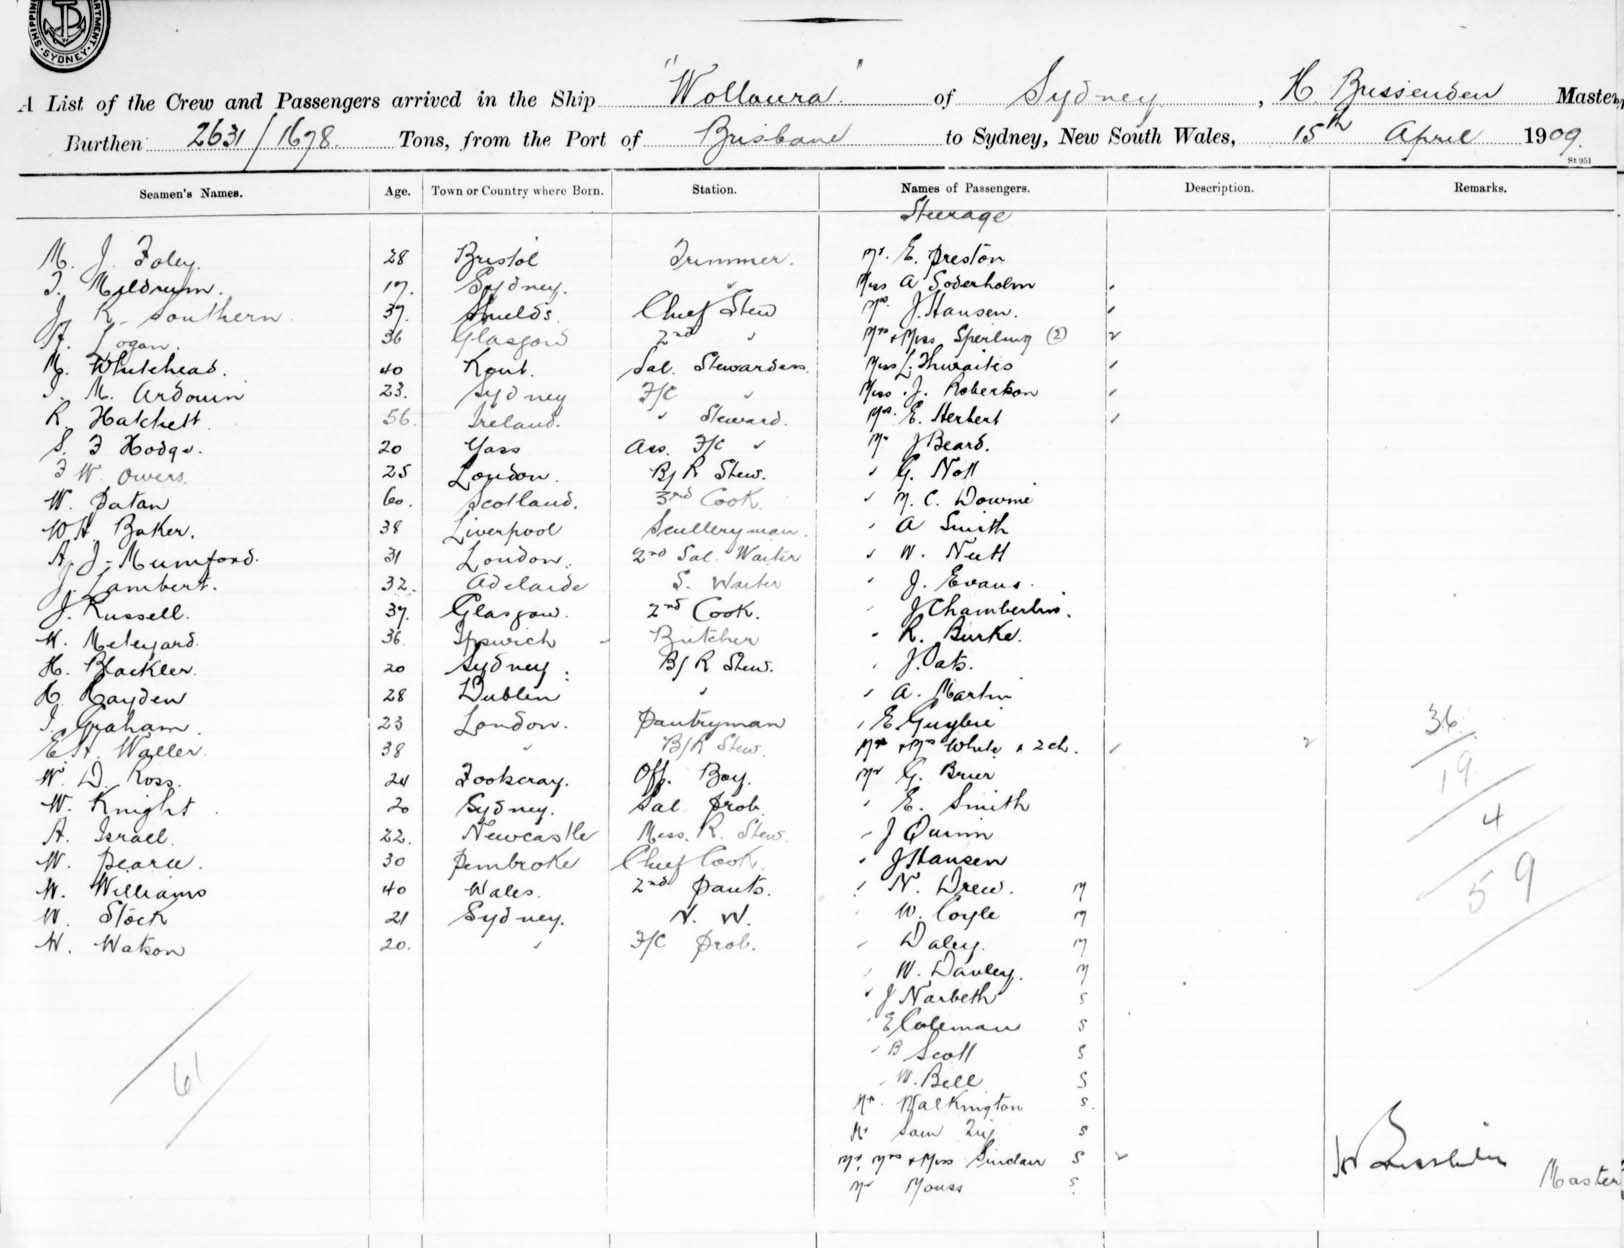 SHIPPING DEPARTMENT SYDNEY
A List of the Crew and Passengers arrived in the Ship "Wollowra" of Sydney, H. Brissenden Master,
Burthen 2631/1678 Tons, from the Port of Brisbane to Sydney, New South Wales, 15th April 1909.
St 951
Seamen's Names. Age. Town or Country where Born. Station. Names of Passengers. Description. Remarks.
Steerage
M. J. Foley. 28 Bristol Trimmer. Mr. E. Preston
T. Meldrum. 17. Sydney. " Miss A Soderholm ,
J. K. Southern 37. Shields. Chief Stew Mrs. J. Hansen. ,
A. Logan. 36 Glasgow 2nd " Mrs & Miss Sperling (2) 2
M. Whitehead. 40 Kent. Sal. Stewardess. Miss L. Thwaites ,
I. M. Ardouin 23. Sydney F/C " Miss J. Robertson ,
R. Hatchett 56 Ireland. " Steward. Mrs. E. Herbert ,
S. F Hodge. 20 Yass Ass. F/C " Mr J Beard.
F W. Owers. 25 London. B/R Stew. " G. Nott
W. Patan 60. Scotland. 3rd Cook " M. C. Downie
W A Baker. 38 Liverpool Sculleryman. " A Smith
A. J. Mumford. 31 London. 2nd Sal. Waiter " W. Nutt
J. Lambert. 32. Adelaide S. Waiter " J. Evans.
J. Russell. 37. Glasgow. 2nd Cook. " J Chamberlin.
W. Meteyard. 36 Ipswich Butcher " R. Burke.
H. Blackler. 20 Sydney. B/R Stew. " J. Oats.
H. Hayden 28 Dublin " " A. Martin
I. Graham. 23 London. Pantryman " E
E. A. Waller. 38 " B/R Stew. Mr & Mrs White & 2 ch. , 2
W. D. Ross. 24 Footscray. Off. Boy. Mr G. Brier
W. Knight. 20 Sydney. Sal. Prob. " E. Smith
A. Israel. 22. Newcastle Mess. R. Stew. " J Quinn
W. Pearce. 30 Pembroke Chief Cook. " J Hansen
W. Williams 40 Wales. 2nd Pants. " N. Drew. M
W. Stock 21 Sydney. N. W. " W. Coyle M
W. Watson 20. " F/C Prob. " Daley. M
" W. Davley. M
" J Narbeth S
" E Coleman S
" B Scott S
" W. Bell S
Mr. Walkington S.
Mr Sam S
Mr, Mrs & Miss Sinclair S 2
Mr Mouss S.
36
19
4
59
61
H Brissenden Master